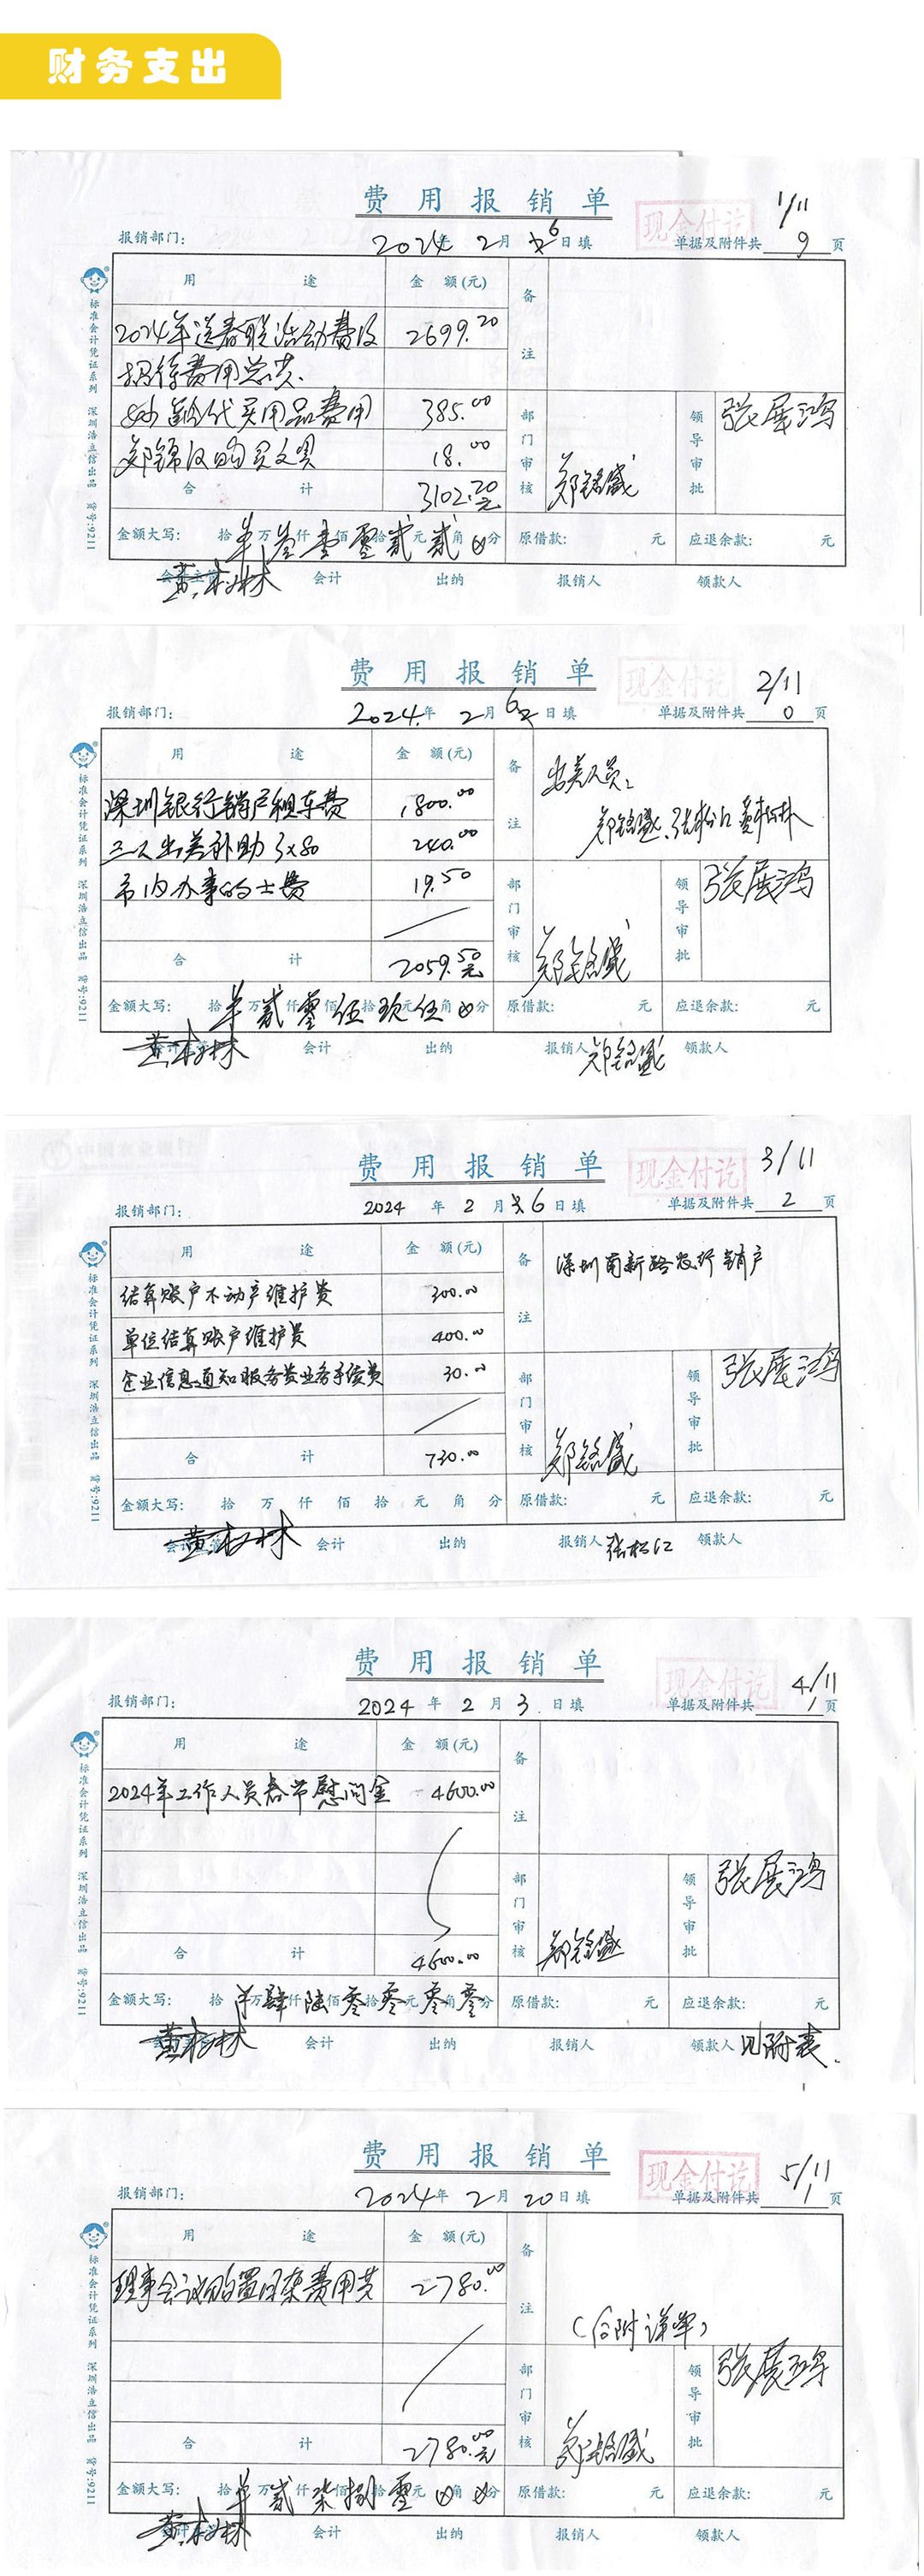 财务支出
费用报销单
现金付讫
1/11
报销部门:
2024年 2月 6日填
单据及附件共 9 页
用途
金额(元)
备注
2024年送春联活动费及
2699.20
招待费用共.
代买用品费用
385.00
郑锦汉购买文具
18.00
合计
3102.20元
部门审核
郑铭盛
领导审批
张展鸿
金额大写: 拾 羊 万 叁 仟 壹 佰 零 拾 贰 元 贰 角 0 分
原借款: 元
应退余款: 元
会计主管
黄林
会计
出纳
报销人
领款人
标准会计凭证系列 深圳浩立信出品 货号:9211
费用报销单
现金付讫
2/11
报销部门:
2024.年 2月 6日填
单据及附件共 0 页
用途
金额(元)
备注
出差人员:
郑铭盛、张松江、黄林
深圳银行销户租车费
1800.00
三人出差补助 3x80
240.00
市内办事的士费
19.50
合计
2059.50元
部门审核
郑铭盛
领导审批
张展鸿
金额大写: 拾 羊 万 贰 仟 零 佰 伍 拾 玖 元 伍 角 0 分
原借款: 元
应退余款: 元
会计主管
黄林
会计
出纳
报销人 郑铭盛
领款人
标准会计凭证系列 深圳浩立信出品 货号:9211
费用报销单
现金付讫
3/11
报销部门:
2024 年 2 月 6 日填
单据及附件共 2 页
用途
金额(元)
备注
深圳南新路农行销户
结算账户不动产维护费
300.00
单位结算账户维护费
400.00
企业信息通知服务费业务手续费
30.00
合计
730.00
部门审核
郑铭盛
领导审批
张展鸿
金额大写: 拾 万 仟 佰 拾 元 角 分
原借款: 元
应退余款: 元
会计主管
黄林
会计
出纳
报销人 张松江
领款人
标准会计凭证系列 深圳浩立信出品 货号:9211
费用报销单
现金付讫
4/11
报销部门:
2024 年 2 月 3 日填
单据及附件共 1 页
用途
金额(元)
备注
2024年工作人员春节慰问金
4600.00
合计
4600.00
部门审核
郑铭盛
领导审批
张展鸿
金额大写: 拾 羊 万 肆 仟 陆 佰 零 拾 零 元 零 角 零 分
原借款: 元
应退余款: 元
会计主管
黄林
会计
出纳
报销人
领款人 见附表.
标准会计凭证系列 深圳浩立信出品 货号:9211
费用报销单
现金付讫
5/11
报销部门:
2024年 2月 20日填
单据及附件共 1 页
用途
金额(元)
备注
(合附详单)
理事会议购置日杂费用共
2780.00
合计
2780.00元
部门审核
郑铭盛
领导审批
张展鸿
金额大写: 拾 羊 万 贰 仟 柒 佰 捌 拾 零 元 0 角 0 分
原借款: 元
应退余款: 元
会计主管
黄林
会计
出纳
报销人
领款人
标准会计凭证系列 深圳浩立信出品 货号:9211